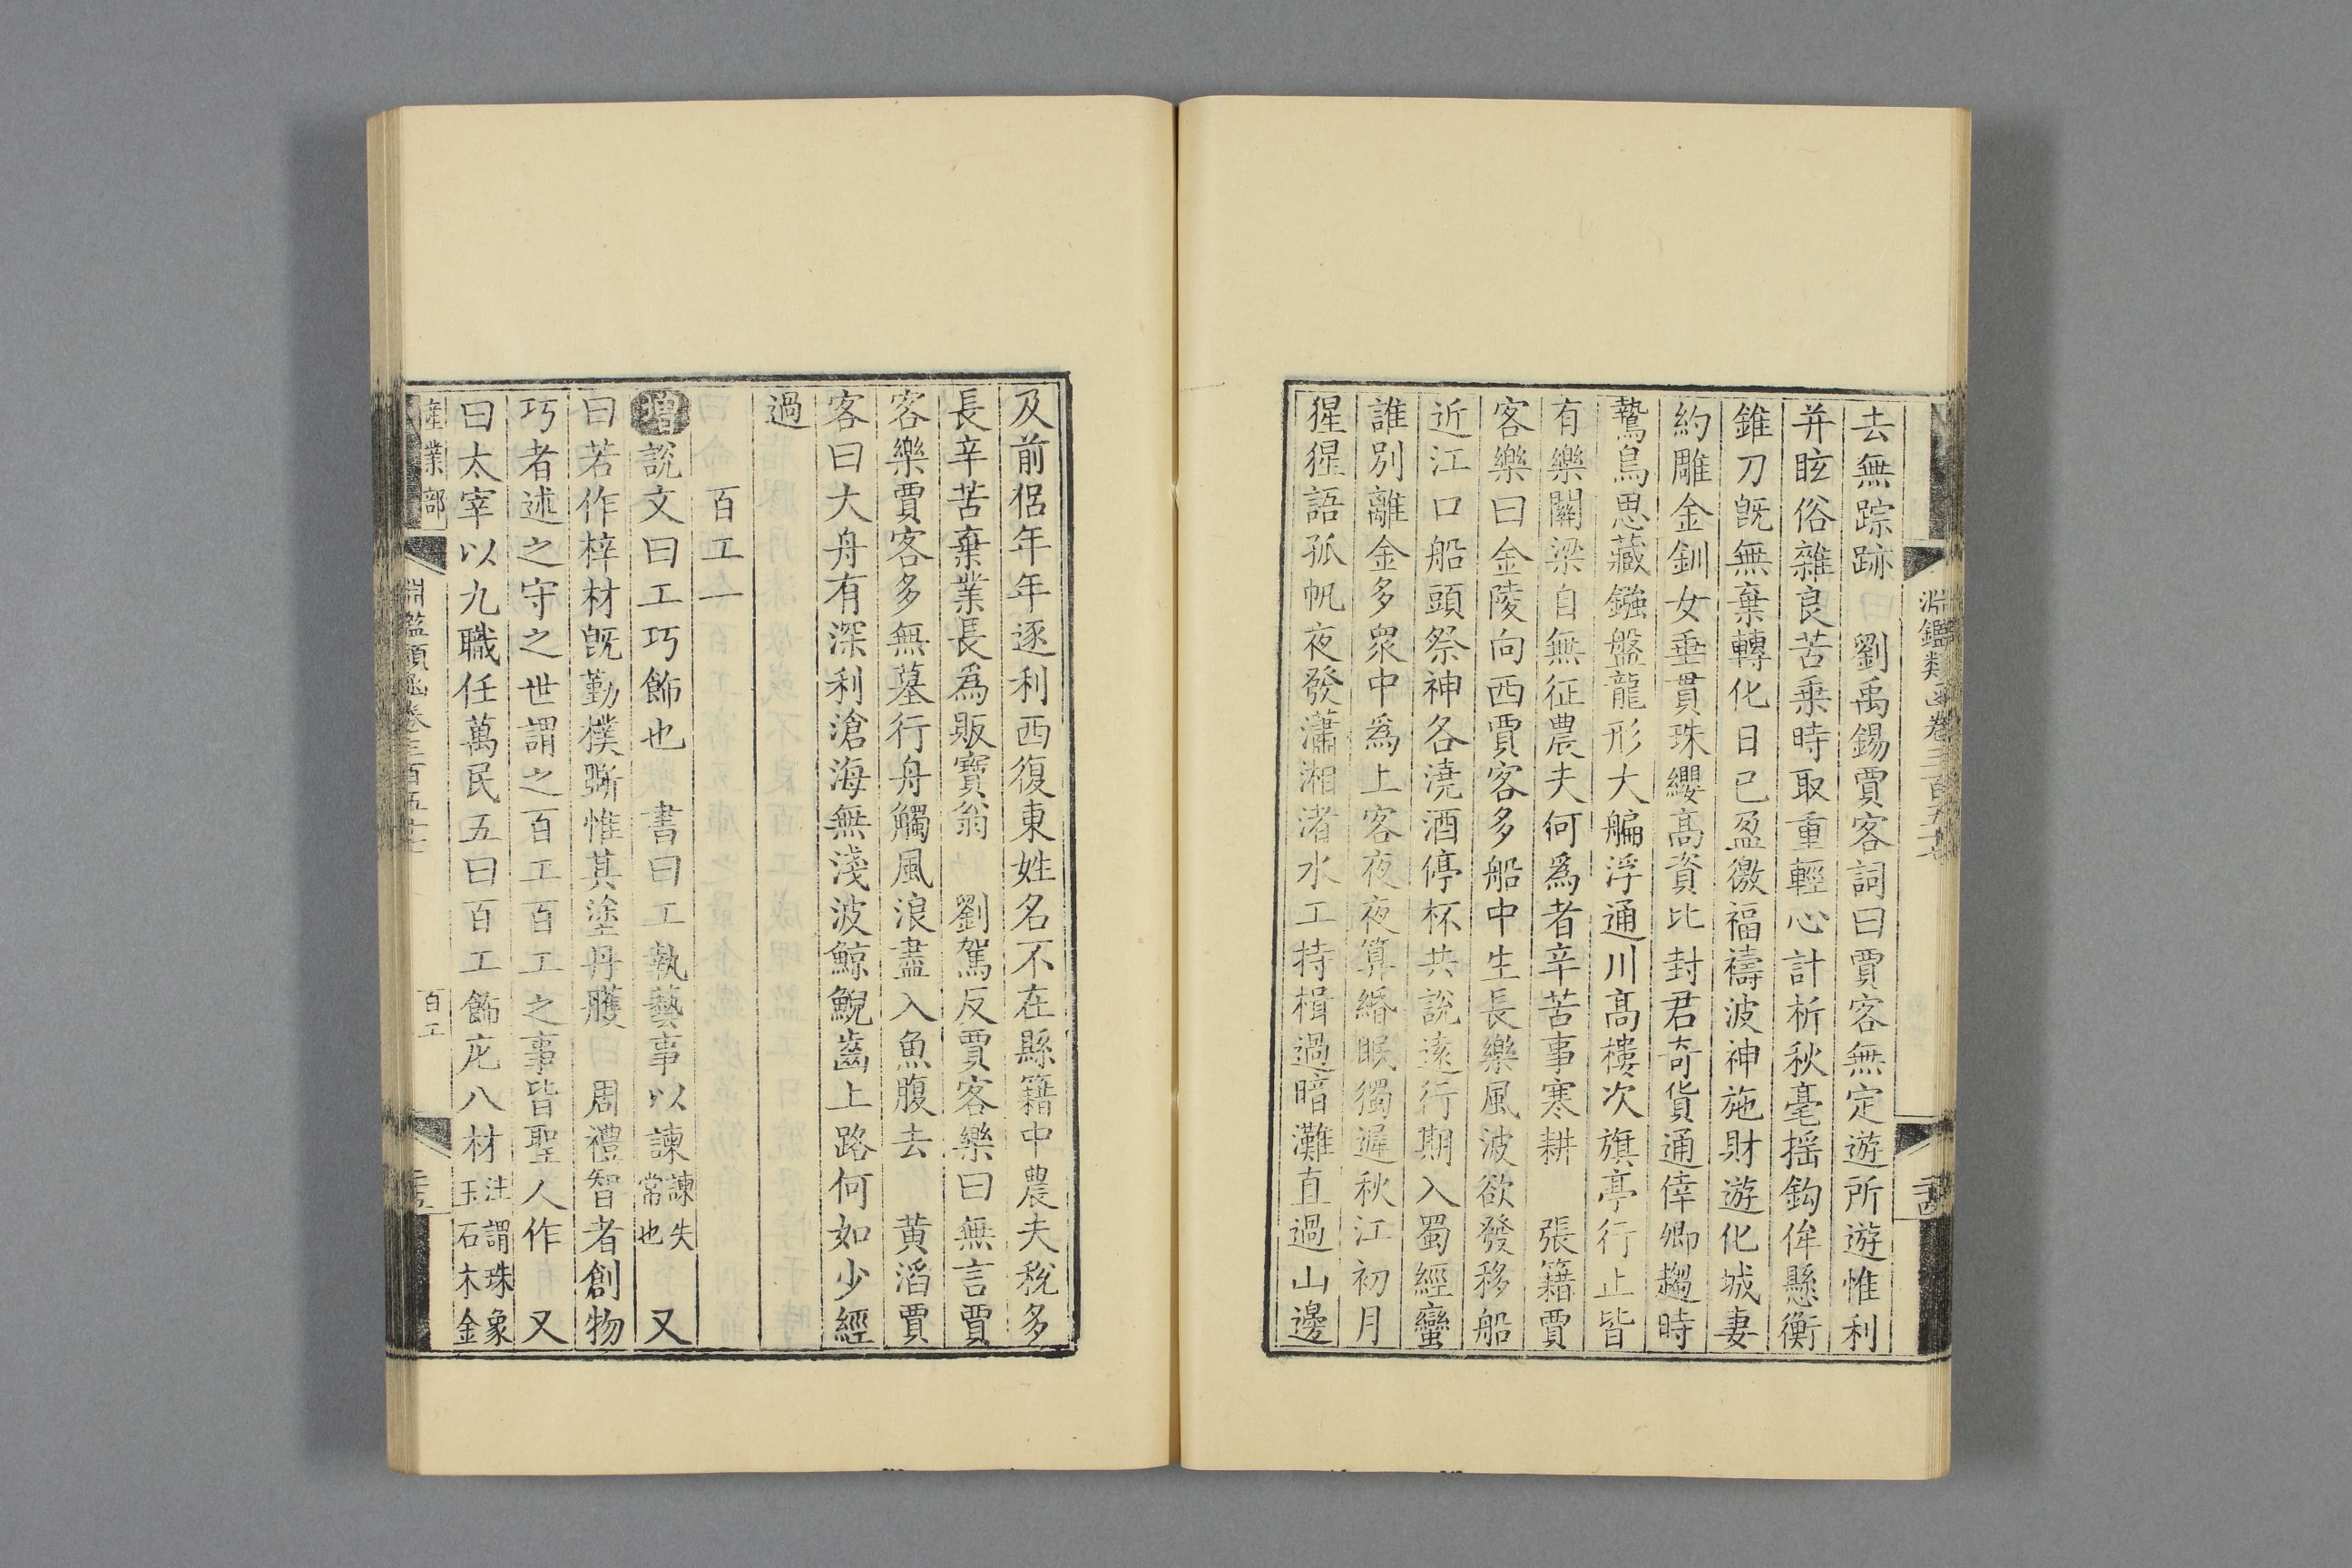 淵鑑類函卷三百五十七
去無踪跡　劉禹錫賈客詞曰賈客無定遊所遊惟利
并眩俗雜良苦乗時取重輕心計析秋毫揺鈎侔懸衡
錐刀旣無棄轉化日已盈徼福禱波神施財遊化城妻
約雕金釧女垂貫珠纓髙資比封君奇貨通倖卿趨時
鷙鳥思藏鏹盤龍形大艑浮通川髙樓次旗亭行止皆
有樂關梁自無征農夫何爲者辛苦事寒耕　張籍賈
客樂曰金陵向西賈客多船中生長樂風波欲發移船
近江口船頭祭神各澆酒停杯共說遠行期入蜀經蠻
誰別離金多衆中爲上客夜夜算緡眠獨遲秋江初月
猩猩語孤帆夜發瀟湘渚水工持楫過暗灘直過山邊
及前侶年年逐利西復東姓名不在縣籍中農夫稅多
長辛苦棄業長爲販寳翁　劉駕反賈客樂曰無言賈
客樂賈客多無墓行舟觸風浪盡入魚腹去　黄滔賈
客曰大舟有深利滄海無淺波鯨鯢齒上路何如少經
過
百工一
增說文曰工巧飾也　書曰工執藝事以諫諫失常也　又
曰若作梓材旣勤樸斲惟其塗丹雘　周禮智者創物
巧者述之守之世謂之百工百工之事皆聖人作　又
曰太宰以九職任萬民五曰百工飾庀八材注謂珠象玉石木金
產業部
淵鑑類函卷三百五十七
百工